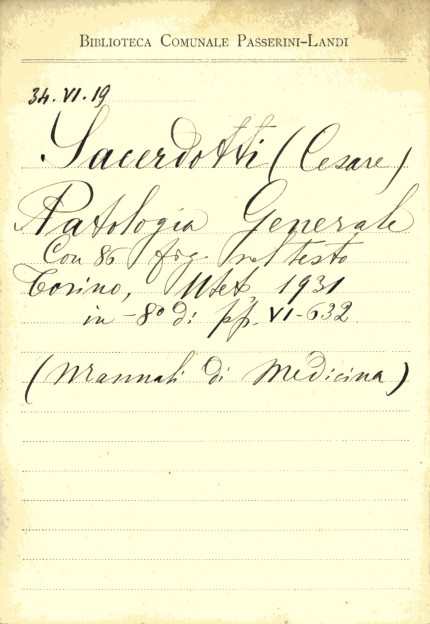 BIBLIOTECA COMUNALE PASSERINI-LANDI
34.VI.19
Sacerdotti (Cesare)
Patologia Generale
Con 86 fig. nel testo
Torino, Utet, 1931
in -8° di pp. VI-632
(Mannali di Medicina)